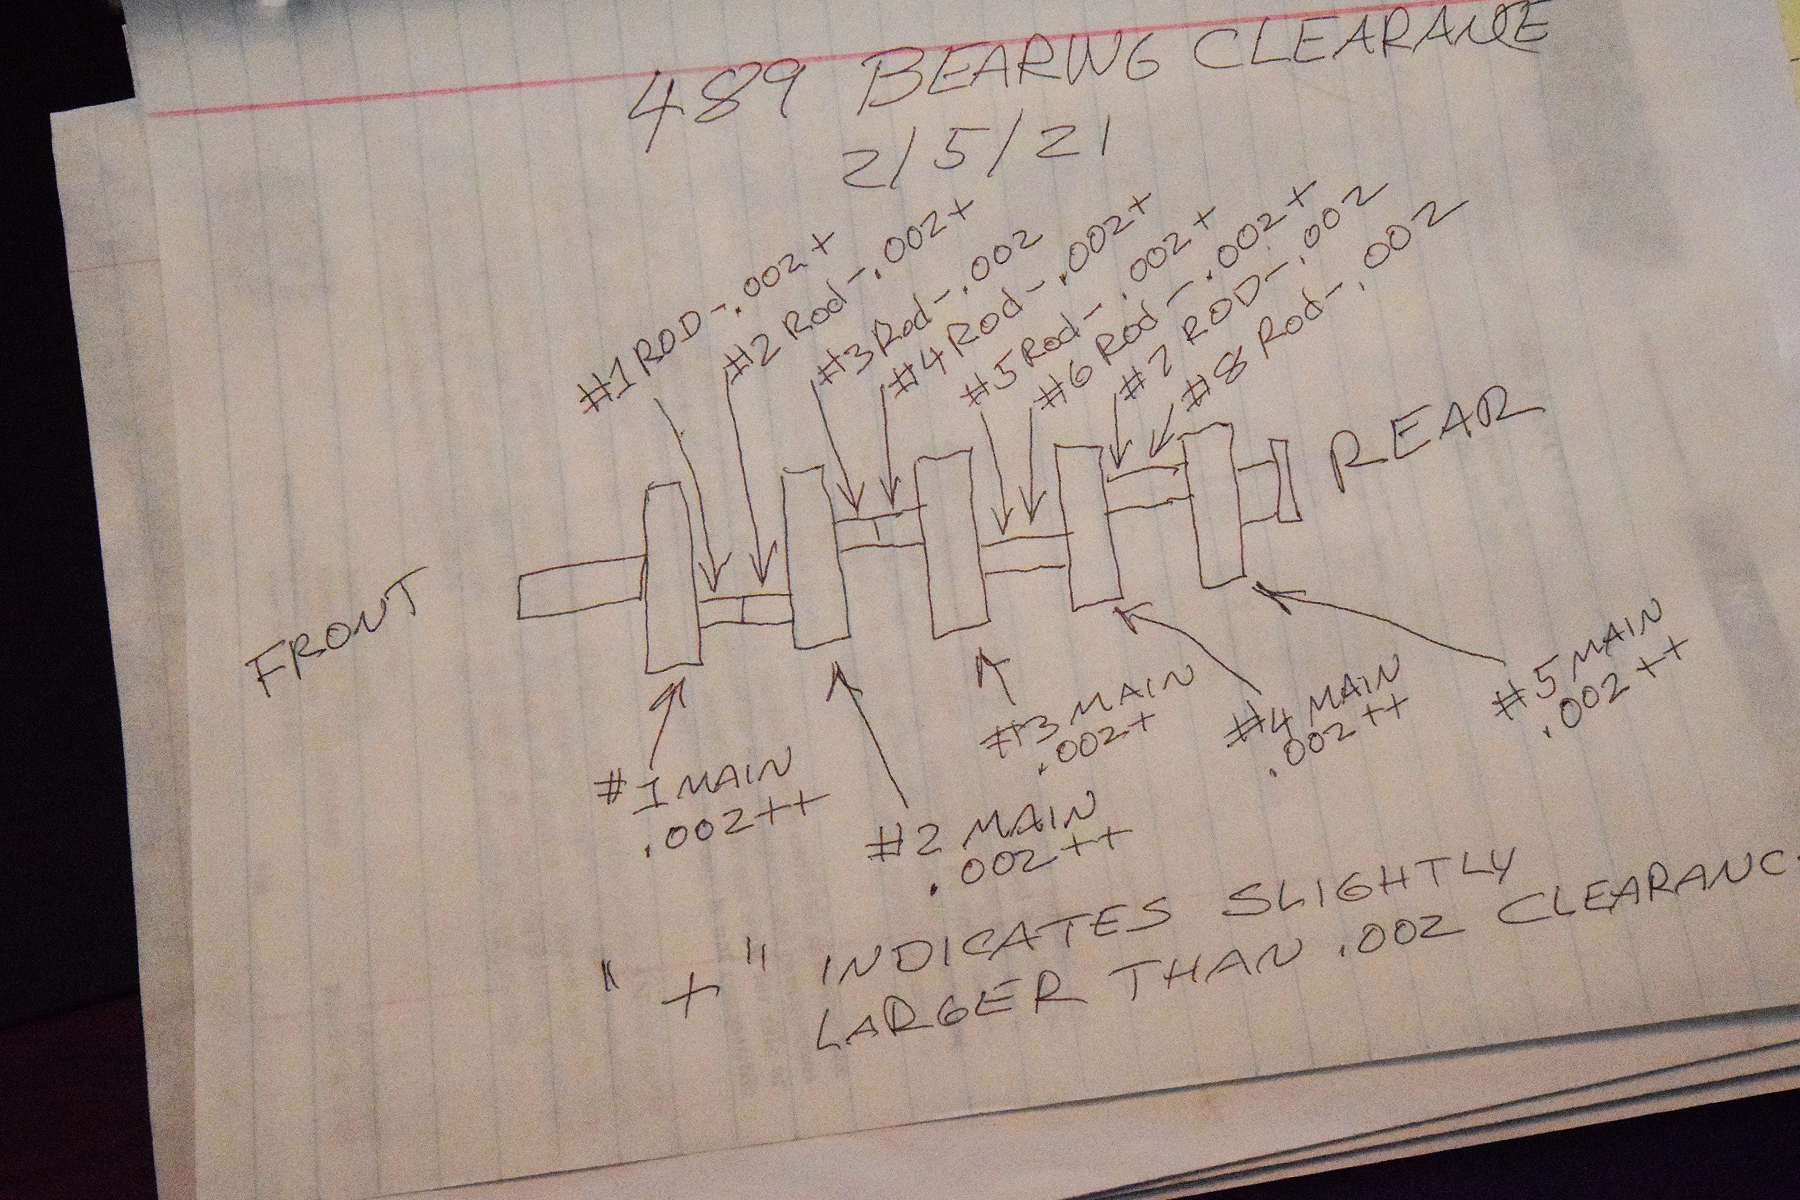 489 BEARING CLEARANCE
2/5/21
#1 ROD-.002+
#2 Rod-.002+
#3 Rod-.002
#4 Rod-.002+
#5 Rod-.002+
#6 Rod-.002+
#7 ROD-.002
#8 Rod-.002
REAR
FRONT
#1 MAIN
.002++
#2 MAIN
.002++
#3 MAIN
.002+
#4 MAIN
.002++
#5 MAIN
.002++
"+" INDICATES SLIGHTLY
LARGER THAN .002 CLEARANC